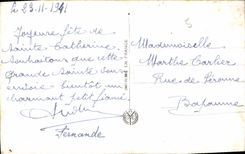 Le 23-11-1941
Joyeuse fête de
Sainte Catherine
Souhaitons que cette
Grande Sainte vous
envoie bientôt un
charmant petit fiancé
Fernande
Mademoiselle
Marthe Carlier
Rue de Péronne
Bapaume